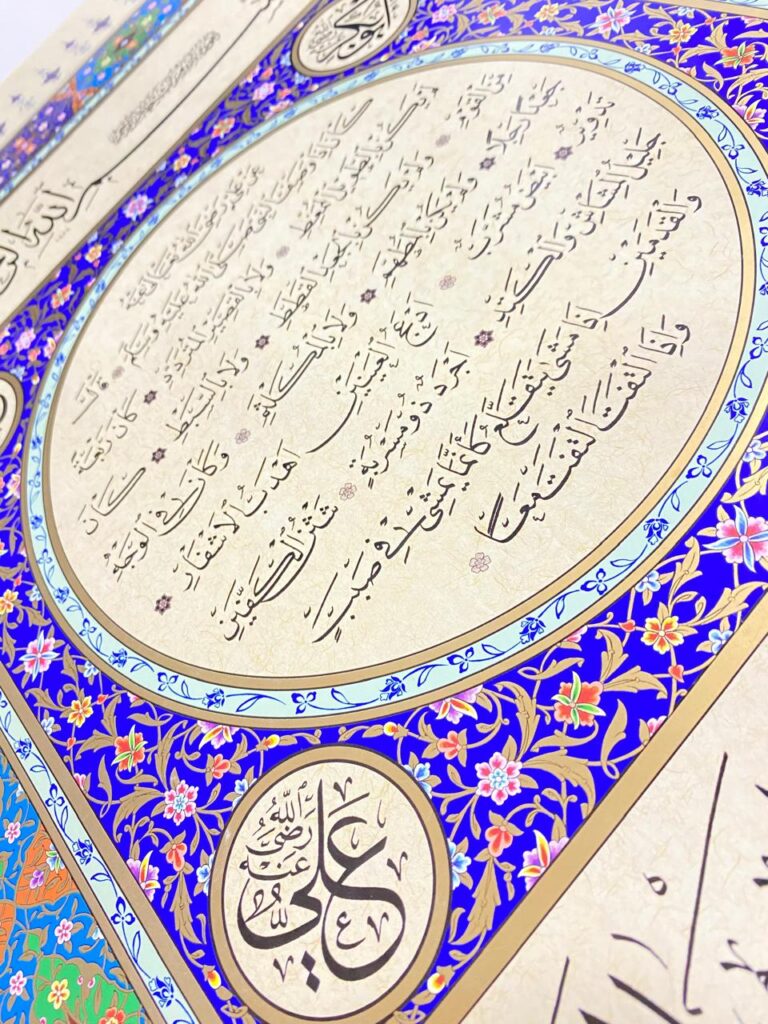 بسم الله
عن علي رضي الله عنه انه
كان اذا وصف النبي صلى الله عليه وسلم قال
لم يكن بالطويل الممغط ولا بالقصير المتردد كان ربعة
من القوم ولم يكن بالجعد القطط ولا بالسبط كان
جعدا رجلا ولم يكن بالمطهم ولا بالمكلثم وكان في الوجه
تدوير ابيض مشرب ادعج العينين اهدب الاشفار
جليل المشاش والكتد اجرد ذو مسربة شثن الكفين
والقدمين اذا مشى يتقلع كأنما يمشي في صبب
واذا التفت التفت معا
علي رضي الله عنه